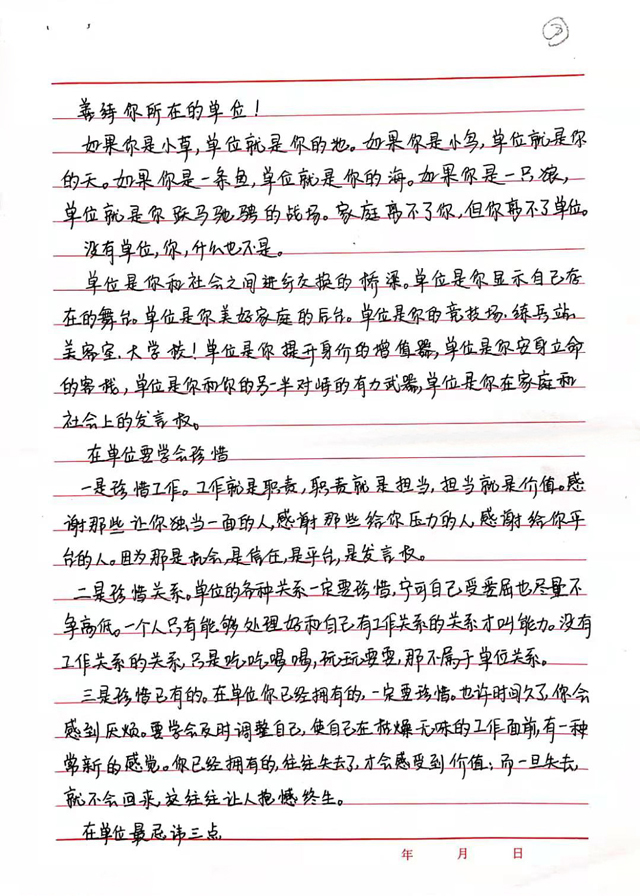 ②
善待你所在的单位！
如果你是小草,单位就是你的地。如果你是小鸟,单位就是你
的天。如果你是一条鱼,单位就是你的海。如果你是一只狼,
单位就是你跃马驰骋的战场。家庭离不了你,但你离不了单位。
没有单位,你,什么也不是。
单位是你和社会之间进行交换的桥梁。单位是你显示自己存
在的舞台。单位是你美好家庭的后台。单位是你的竞技场.练兵站.
美容室.大学校！单位是你提升身价的增值器,单位是你安身立命
的客栈,单位是你和你的另一半对峙的有力武器,单位是你在家庭和
社会上的发言权。
在单位要学会珍惜
一是珍惜工作。工作就是职责,职责就是担当,担当就是价值。感
谢那些让你独当一面的人,感谢那些给你压力的人,感谢给你平
台的人。因为那是机会,是信任,是平台,是发言权。
二是珍惜关系。单位的各种关系一定要珍惜,宁可自己受委屈也尽量不
争高低。一个人只有能够处理好和自己有工作关系的关系才叫能力。没有
工作关系的关系,只是吃吃喝喝,玩玩耍耍,那不属于单位关系。
三是珍惜已有的。在单位你已经拥有的,一定要珍惜。也许时间久了,你会
感到厌烦。要学会及时调整自己,使自己在枯燥无味的工作面前,有一种
常新的感觉。你已经拥有的,往往失去了,才会感受到价值；而一旦失去,
就不会回来,这往往让人抱憾终生。
在单位最忌讳三点
年 月 日